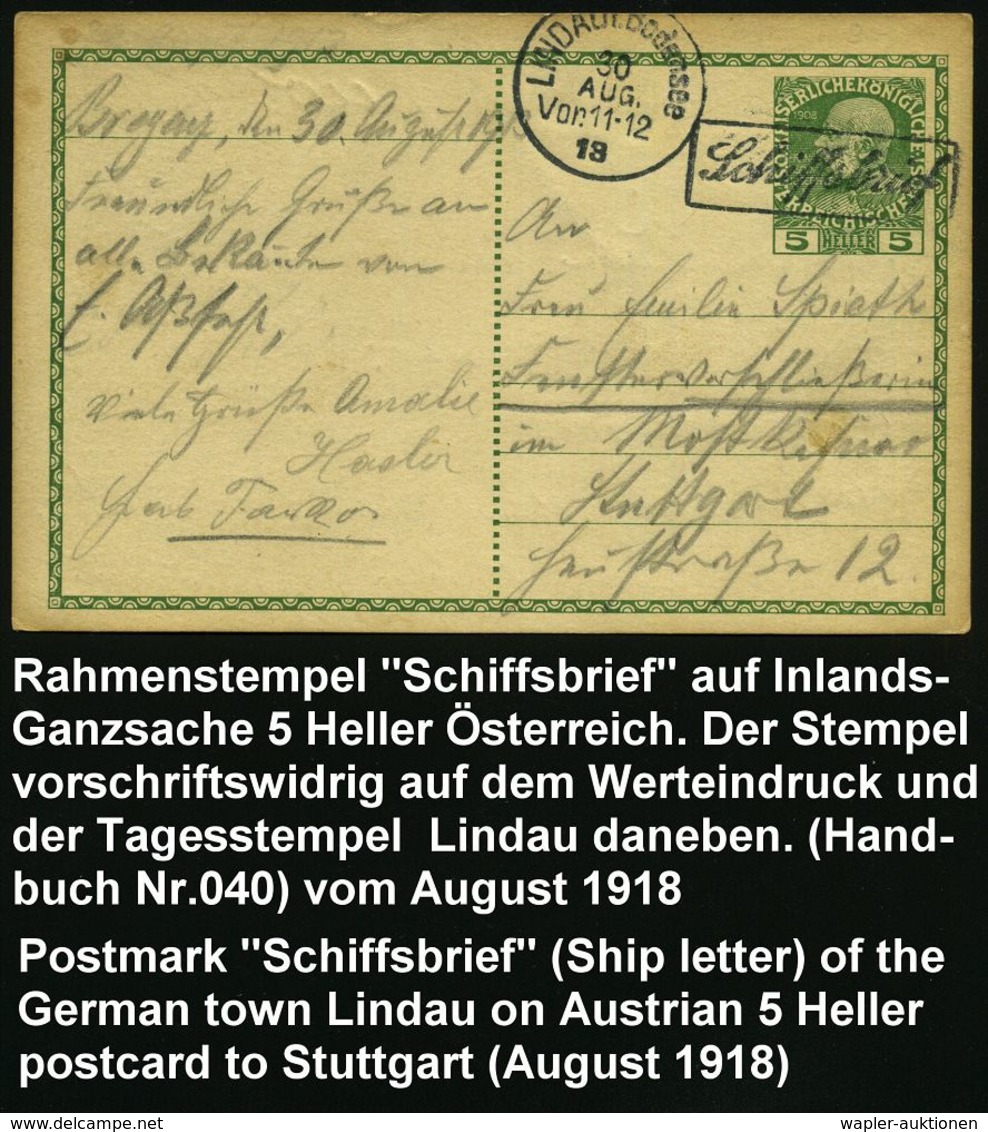 LINDAU i. Bodensee
30
AUG.
Vor. 11-12
18
Schiffsbrief
KAISERLICHE KÖNIGLICHE
1908
ÖSTERREICHISCHE
5 HELLER 5
den 30. August
Freundliche Grüße an
alle Bekannte von
viele Grüße Amalie
Hasler
An
Frau Emilie Spieth
Fensterverschließerin
im
Stuttgart
Heustraße 12.
Rahmenstempel "Schiffsbrief" auf Inlands-
Ganzsache 5 Heller Österreich. Der Stempel
vorschriftswidrig auf dem Werteindruck und
der Tagesstempel Lindau daneben. (Hand-
buch Nr.040) vom August 1918
Postmark "Schiffsbrief" (Ship letter) of the
German town Lindau on Austrian 5 Heller
postcard to Stuttgart (August 1918)
wapler-auktionen